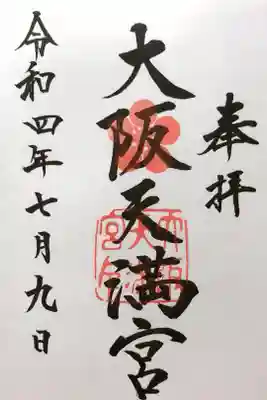 奉拝
大阪天満宮
令和四年七月九日